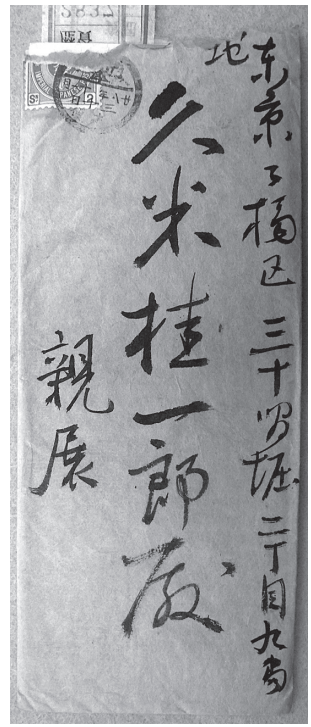 東京々橋区三十間堀二丁目九番
地
久米桂一郎殿
親展